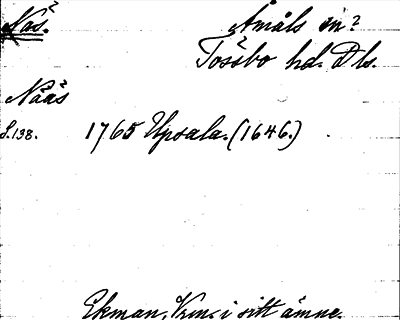 Näs.
Åmåls sn?
Tössbo hd. Dls.
Nääs
S.138. 1765 Upsala. (1646.)
Ekman, Vrm. i sitt ämne.